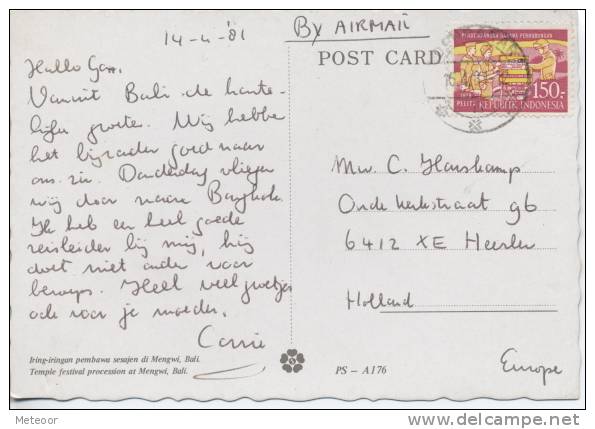 14-4-'81
By AIRMAIL
POST CARD
150.-
PELITA REPUBLIK INDONESIA
Hallo
Vanuit Bali de harte-
lijke groete. Wij hebbe
het bijzonder goed naar
ons zin. Donderdag vliegen
wij door naar Bangkok.
Ik heb en heel goede
reisleider bij mij, hij
doet niet onder voor
beroeps. Heel veel groetjes
ook voor je moeder.
Corrie
Mw. C. Hanskamp
Oude Kerkstraat 96
6412 XE Heerlen
Holland
Europe
Iring-iringan pembawa sesajen di Mengwi, Bali.
Temple festival procession at Mengwi, Bali.
PS - A176
Meteoor
www.delcampe.net